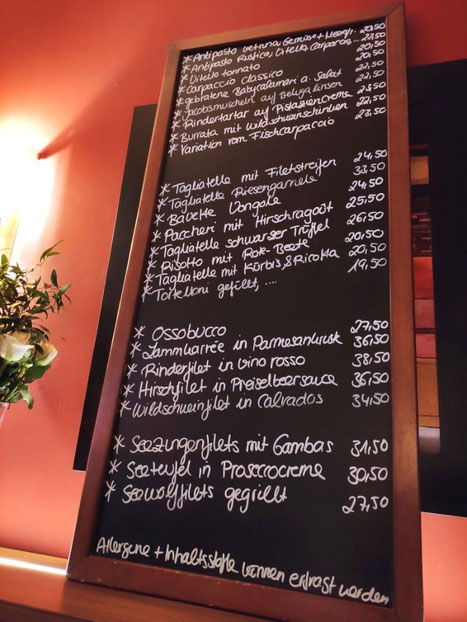 * Antipasto Vetrina, Gemüse + Meeresfr. 20,50
* Antipasto Rustico, Vitello, Carpaccio... 22,50
* Vitello tonnato 20,50
* Carpaccio Classico 20,50
* gebratene Babycalamari a. Salat 22,50
* Jacobsmuscheln auf Beluga Linsen 22,50
* Rindertartar auf Pistaziencreme 23,50
* Burrata mit Wildschweinschinken 22,50
* Variation vom Fischcarpaccio 23,50
* Tagliatelle mit Filetstreifen 24,50
* Tagliatelle Riesengarnele 33,50
* Bavette Vongole 24,50
* Paccheri mit Hirschragoût 25,50
* Tagliatelle schwarzer Trüffel 26,50
* Risotto mit Rote-Beete 20,50
* Tagliatelle mit Kürbis & Ricotta 20,50
* Tortelloni gefüllt, .... 19,50
* Ossobucco 27,50
* Lammkarrée in Parmesankruste 36,50
* Rinderfilet in Vino rosso 38,50
* Hirschfilet in Preiselbeersauce 36,50
* Wildschweinfilet in Calvados 34,50
* Seezungenfilets mit Gambas 31,50
* Seeteufel in Proseccocreme 30,50
* Seewolffilets gegrillt 27,50
Allergene + Inhaltsstoffe können erfragt werden